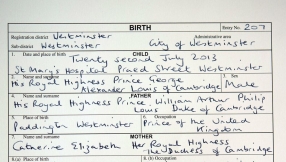 BIRTH
Entry No. 207
Registration district Westminster
Administrative area
Sub-district Westminster
City of Westminster
1. Date and place of birth
CHILD
Twenty second July 2013
St Mary's Hospital Praed Street Westminster
2. Name and surname
3. Sex
His Royal Highness Prince George
Alexander Louis of Cambridge
Male
4. Name and surname
FATHER
His Royal Highness Prince William Arthur Philip
Louis Duke of Cambridge
5. Place of birth
6.
Paddington Westminster
Prince of the United
Kingdom
7. Name and surname
MOTHER
Catherine Elizabeth Her Royal Highness
The Duchess of Cambridge
8.(a) Place of birth
8.(b) Occupation